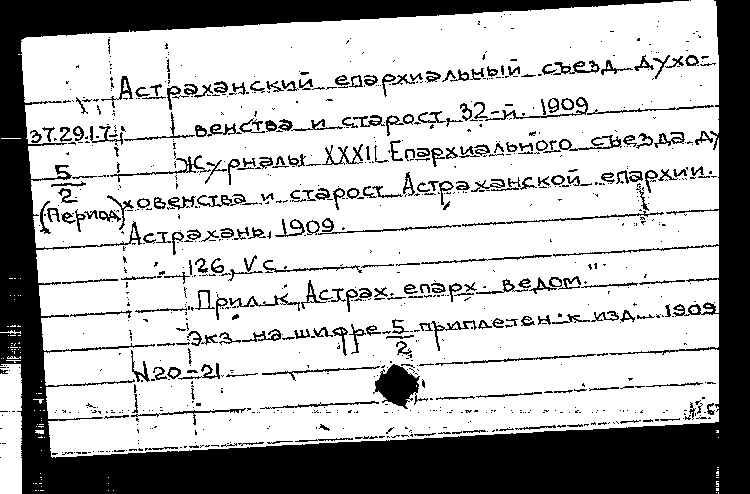 Астраханский епархиальный съезд духо-
37.29.1.7. венства и старост, 32-й. 1909.
5/2 Журналы XXXII Епархиального съезда ду
(Период) ховенства и старост Астраханской епархии.
Астрахань, 1909.
126, V с.
Прил. к „Астрах. епарх. ведом."
Экз на шифре 5/2 приплетен к изд. 1909
N 20-21